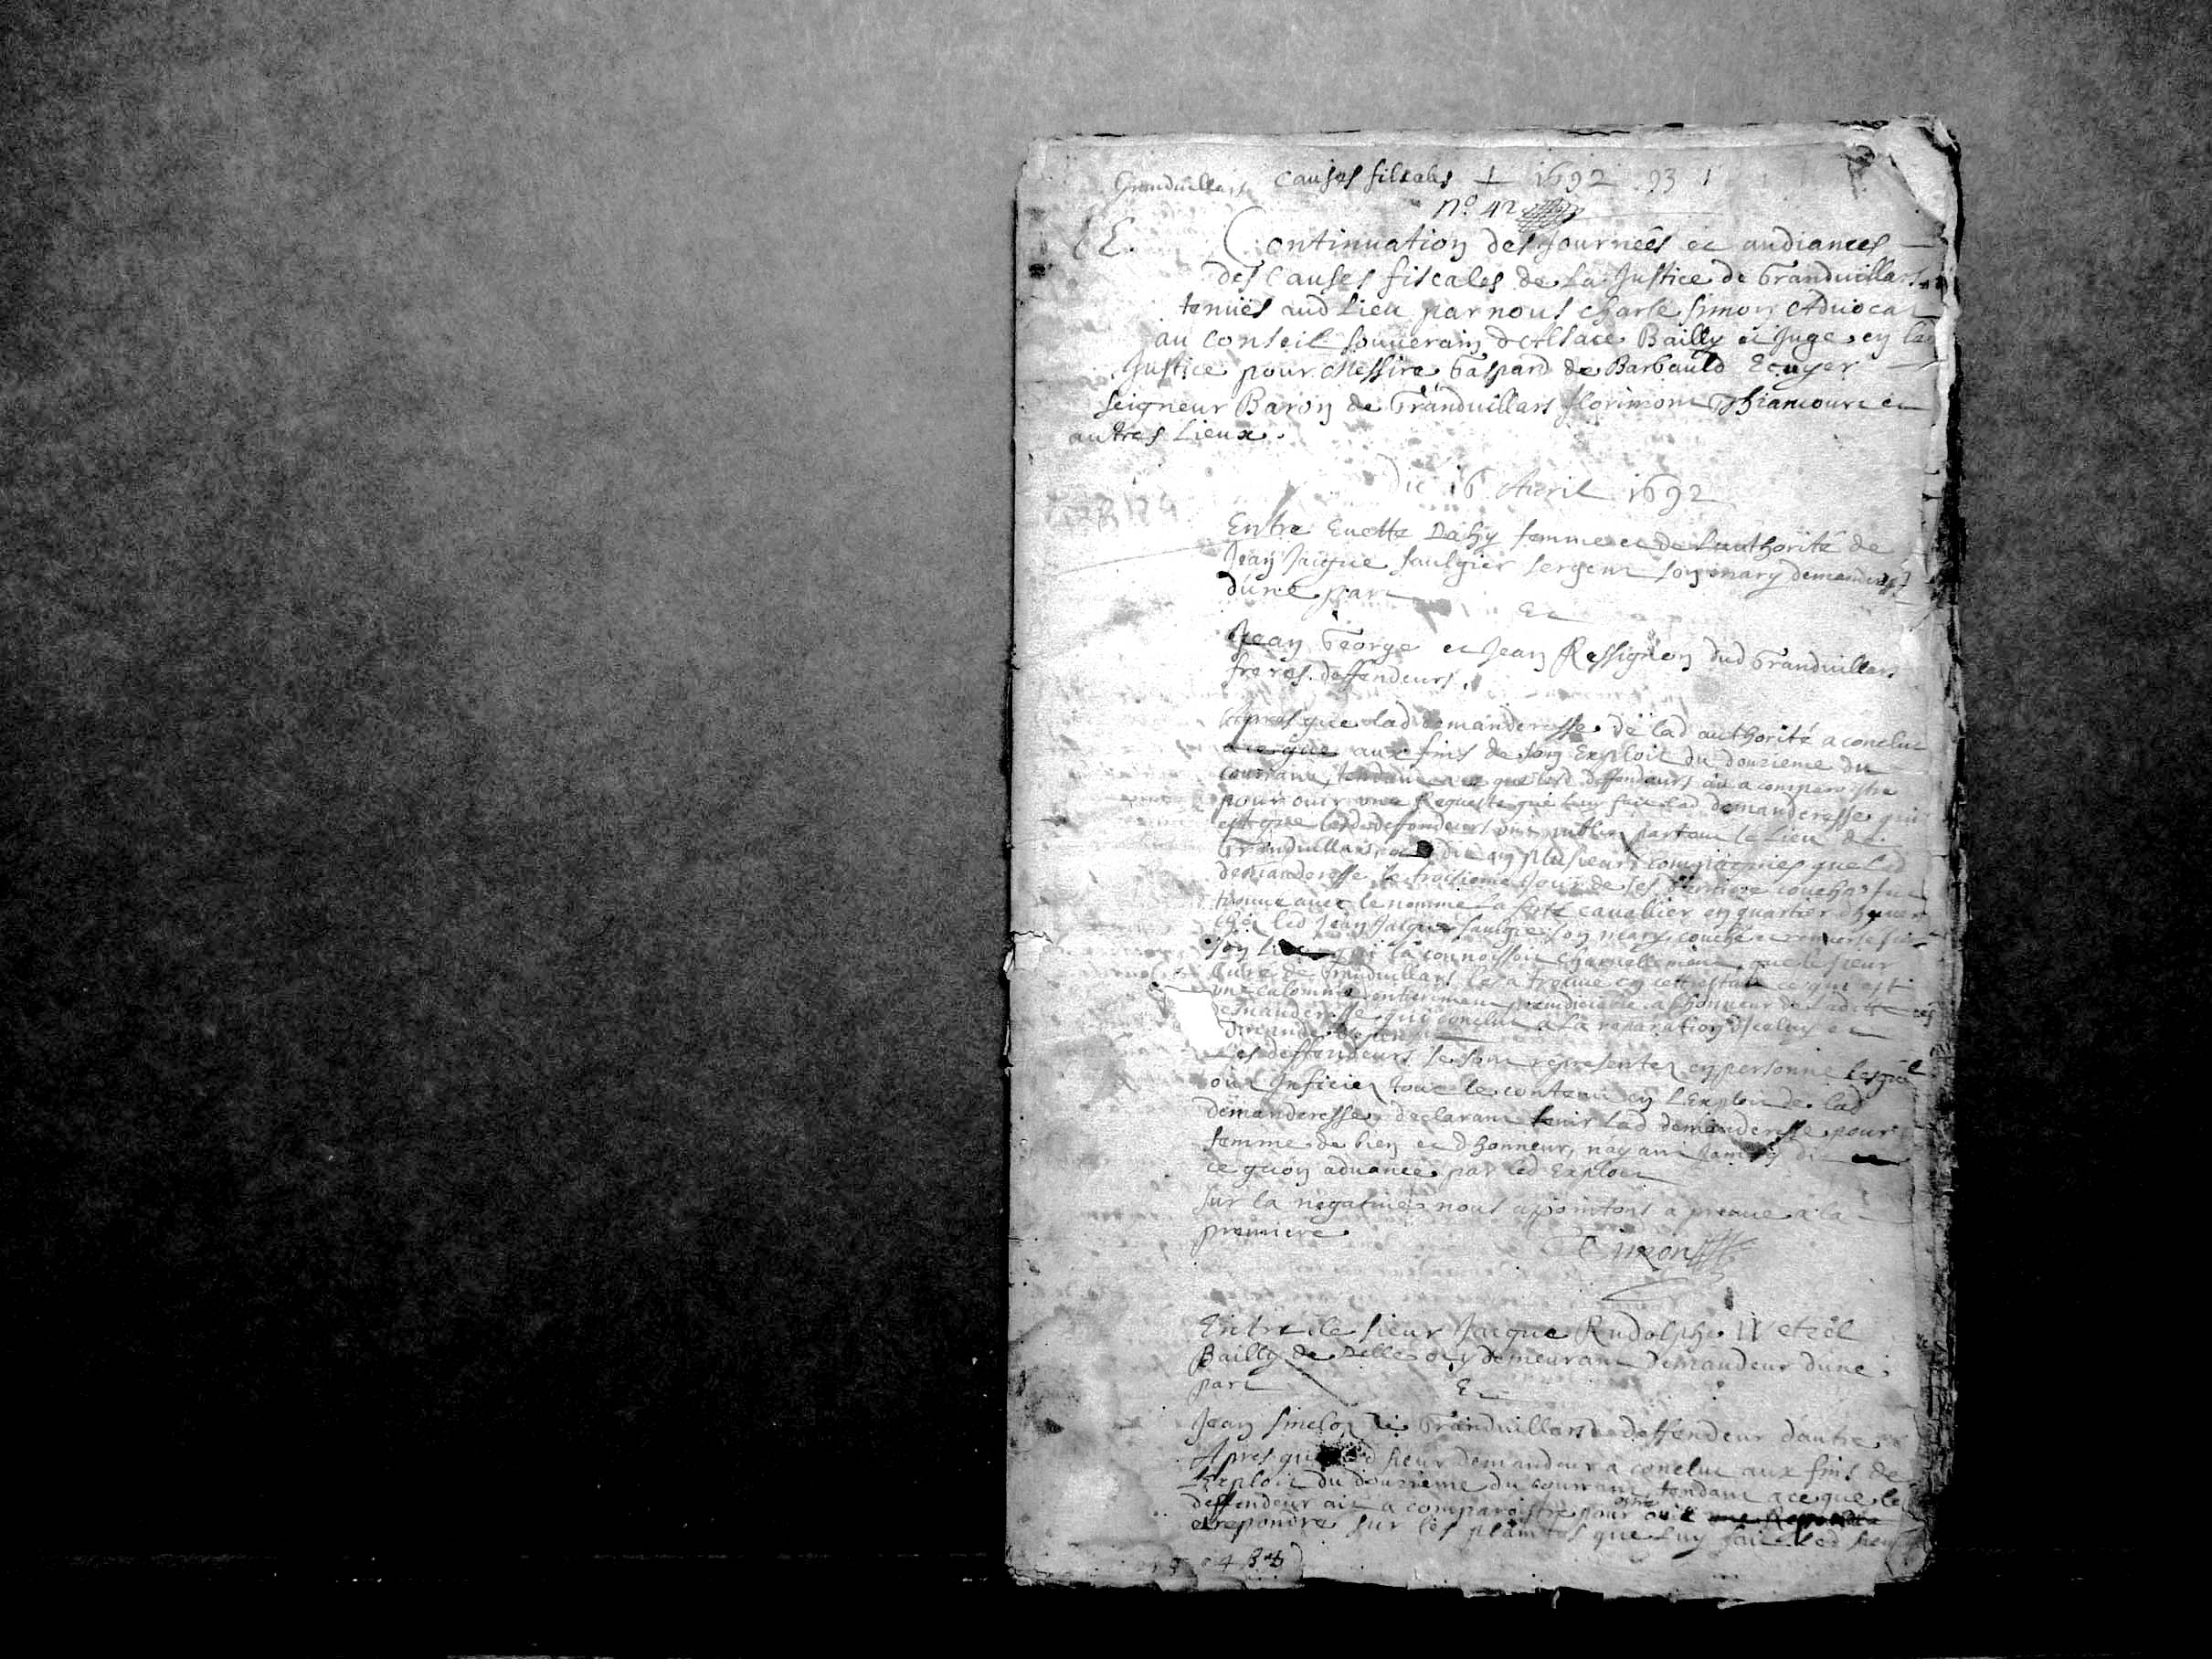 Granduillars causes fiscales + 1692 93 1
N.º 42
Continuation des Journeés et audiances
des Causes fiscales de La Justice de Granduillars
tenuës aud Lieu par nous Charle Simon Aduocat
au Conseil Souuerain d'Alsace Bailly et Juge en lad
Justice pour Messire Gaspard de Barbauld Ecuyer
Seigneur Baron de Granduillars florimont Thiancourt et
autres Lieux.
Du 16 Auril 1692
Entre Euette Dahy femme et de Lauthorité de
Jean Jacque Saulgier sergent son mary demanderesse
dune part
Et
Jean George et Jean Ressignon dud Granduillars
freres deffendeurs.
Apres que lad demanderesse de lad authorité a conclut
aux fins de son Exploit du douzieme du
courrant, tendant a ce que lesd deffendeurs ait a comparoistre
pour ouir une Requeste que leur fait lad demanderesse qui
est que lesd deffendeurs ont publier partout le Lieu de
Granduillars, et dit en plusieurs compagnies que lad
demanderesse le troisieme jour de ses derniere couches fut
trouué auec le nommé la cauallier en quartier dhyuer
chez led Jean Jacque Saulgie son mary, couché et renuersé sur
son qui la connoissoit charnellement, que le sieur
Curé de Granduillars les a trouué en cette estat ce qui est
une calomnie entierement preiudiciable a lhonneur de ladicte
demanderesse qui conclut a la reparation diceluy et
demande depens
Les deffendeurs se sont representez en personne lesquel
ont Inficiez tout le contenu en L'Exploit de lad
demanderesse, declarant tenir lad demanderesse pour
femme de bien et dhonneur, nayant jamais dit
ce quon aduance par led Exploit
Sur la negatiue nous apointons a preuue a la
premiere
CSimon
Entre le sieur Jacque Rudolphe Wetzel
Bailly de Delle y demeurant demandeur dune
part
Et
Jean de Granduillars deffendeur dautre
Apres que led sieur demandeur a conclut aux fins de
L'Exploit du douzieme du courrant, tendant a ce que le
deffendeur ait a comparoistre pour ouir
et repondre sur les plaintes que Luy fait led sieur